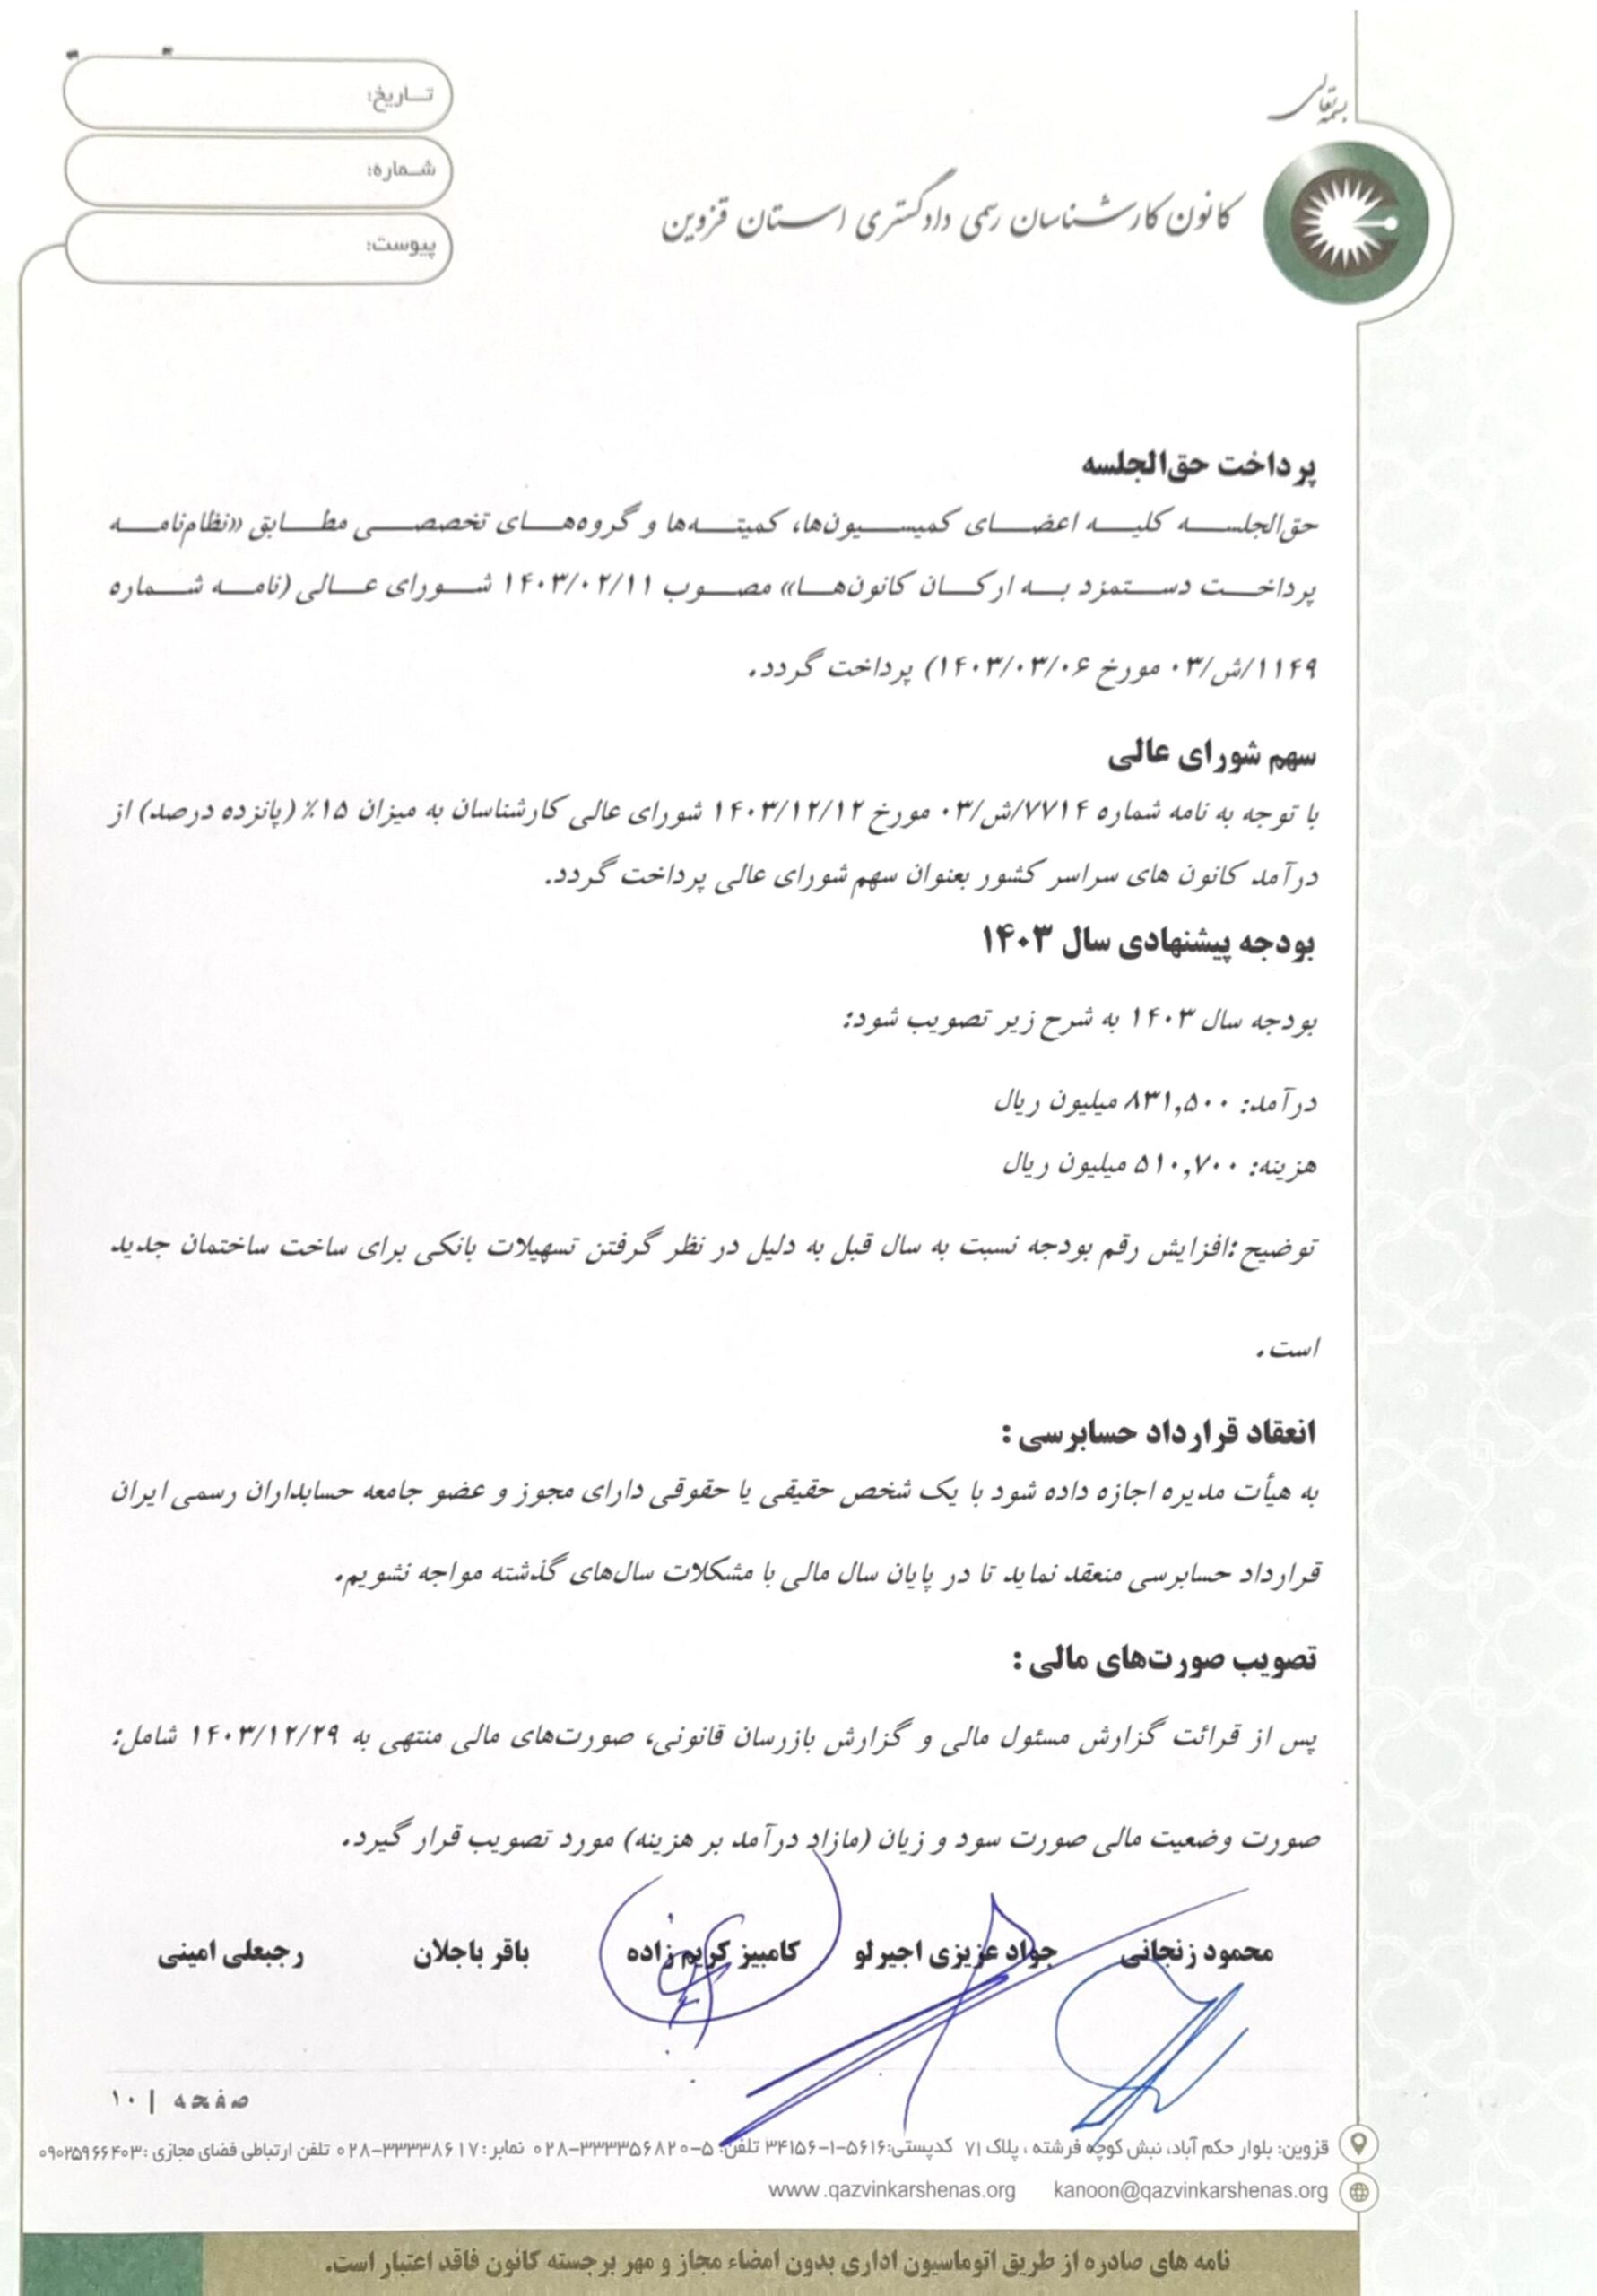 بسمه تعالی
کانون کارشناسان رسمی دادگستری استان قزوین
تاریخ:
شماره:
پیوست:
پرداخت حق‌الجلسه
حق‌الجلسه کلیه اعضای کمیسیون‌ها، کمیته‌ها و گروه‌های تخصصی مطابق «نظام‌نامه
پرداخت دستمزد به ارکان کانون‌ها» مصوب ۱۴۰۳/۰۲/۱۱ شورای عالی (نامه شماره
۱۱۴۹/ش/۰۳ مورخ ۱۴۰۳/۰۳/۰۶) پرداخت گردد.
سهم شورای عالی
با توجه به نامه شماره ۷۷۱۴/ش/۰۳ مورخ ۱۴۰۳/۱۲/۱۲ شورای عالی کارشناسان به میزان ۱۵٪ (پانزده درصد) از
درآمد کانون های سراسر کشور بعنوان سهم شورای عالی پرداخت گردد.
بودجه پیشنهادی سال ۱۴۰۳
بودجه سال ۱۴۰۳ به شرح زیر تصویب شود:
درآمد: ۸۳۱,۵۰۰ میلیون ریال
هزینه: ۵۱۰,۷۰۰ میلیون ریال
توضیح :افزایش رقم بودجه نسبت به سال قبل به دلیل در نظر گرفتن تسهیلات بانکی برای ساخت ساختمان جدید
است.
انعقاد قرارداد حسابرسی :
به هیأت مدیره اجازه داده شود با یک شخص حقیقی یا حقوقی دارای مجوز و عضو جامعه حسابداران رسمی ایران
قرارداد حسابرسی منعقد نماید تا در پایان سال مالی با مشکلات سال‌های گذشته مواجه نشویم.
تصویب صورت‌های مالی :
پس از قرائت گزارش مسئول مالی و گزارش بازرسان قانونی، صورت‌های مالی منتهی به ۱۴۰۳/۱۲/۲۹ شامل:
صورت وضعیت مالی صورت سود و زیان (مازاد درآمد بر هزینه) مورد تصویب قرار گیرد.
محمود زنجانی جواد عزیزی اجیرلو کامبیز کریم زاده باقر باجلان رجبعلی امینی
صفحه | ۱۰
قزوین: بلوار حکم آباد، نبش کوچه فرشته ، پلاک ۷۱ کدپستی:۵۶۱۶-۱-۳۴۱۵۶ تلفن: ۵-۳۳۳۵۶۸۲۰-۰۲۸ نمابر: ۳۳۳۳۸۶۱۷-۰۲۸ تلفن ارتباطی فضای مجازی :۰۹۰۲۵۹۶۶۴۰۳
www.qazvinkarshenas.org kanoon@qazvinkarshenas.org
نامه های صادره از طریق اتوماسیون اداری بدون امضاء مجاز و مهر برجسته کانون فاقد اعتبار است.